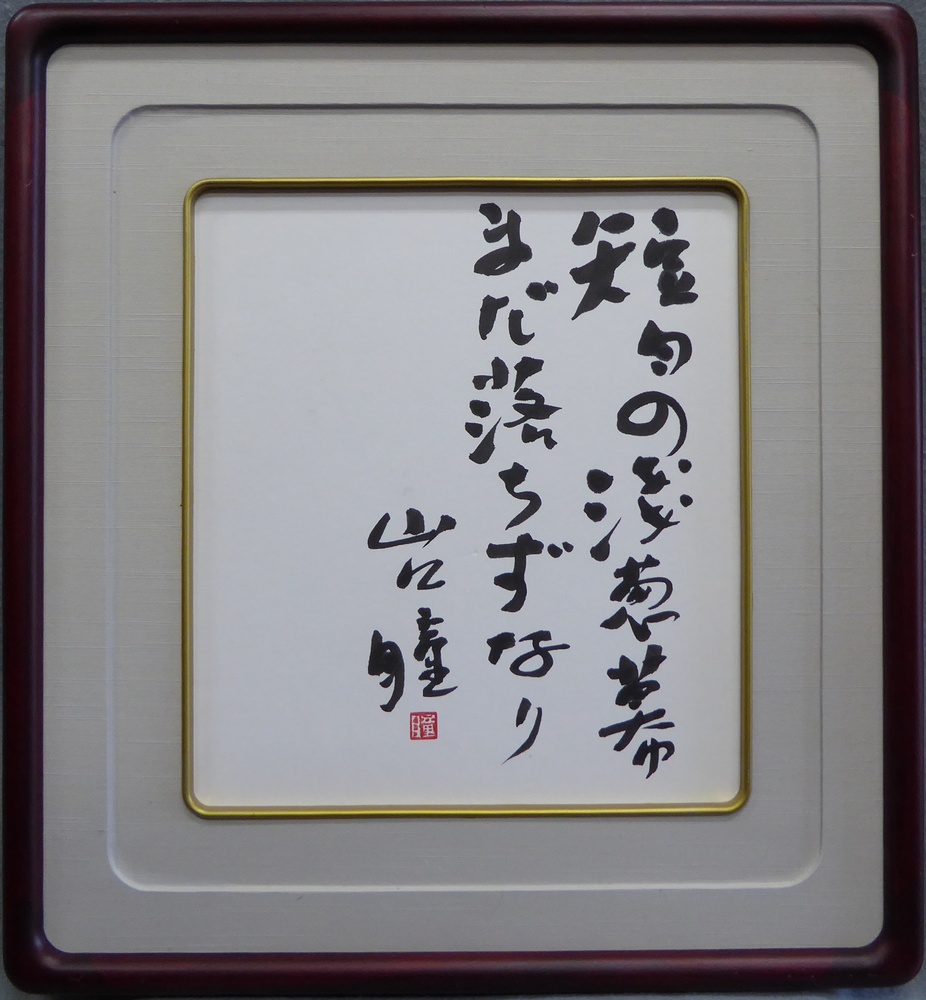 短日の浅葱幕
まだ落ちずなり
山口瞳
瞳